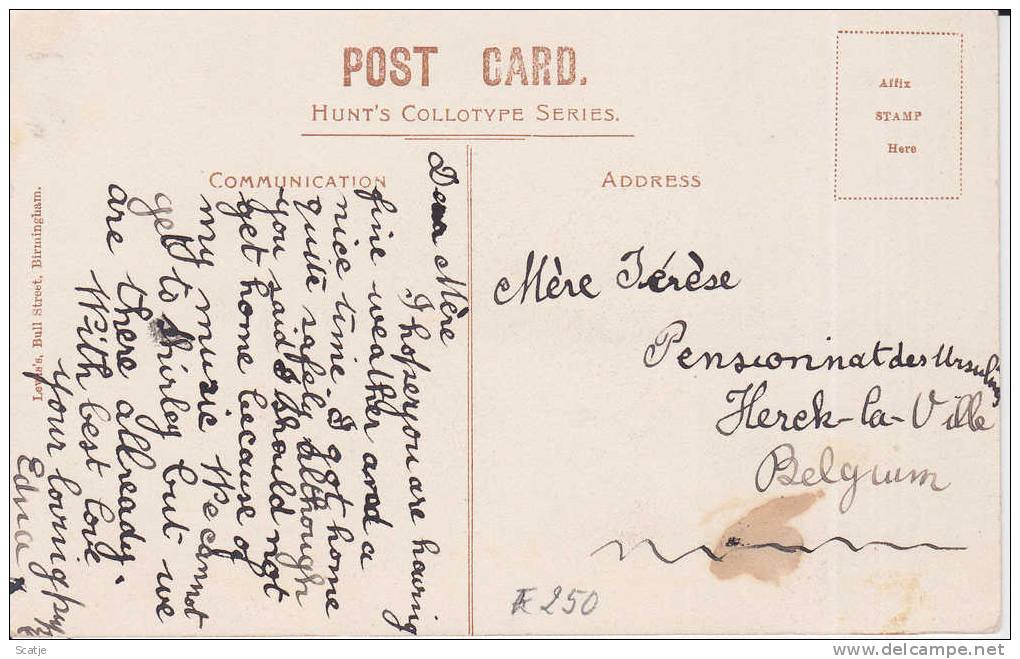 POST CARD.
HUNT'S COLLOTYPE SERIES.
Affix
STAMP
Here
COMMUNICATION
ADDRESS
Dear Mère
I hope you are having
fine weather and a
nice time. I got home
quite safely although
you said I should not
get home because of
my music We cannot
get to Shirley but we
are there allready.
With best love
your loving
Edna
Mère Térèse
Pensionnat des Ursulines
Herck-la-Ville
Belgium
250
Lewis's, Bull Street, Birmingham.
Scatje
delcampe.net